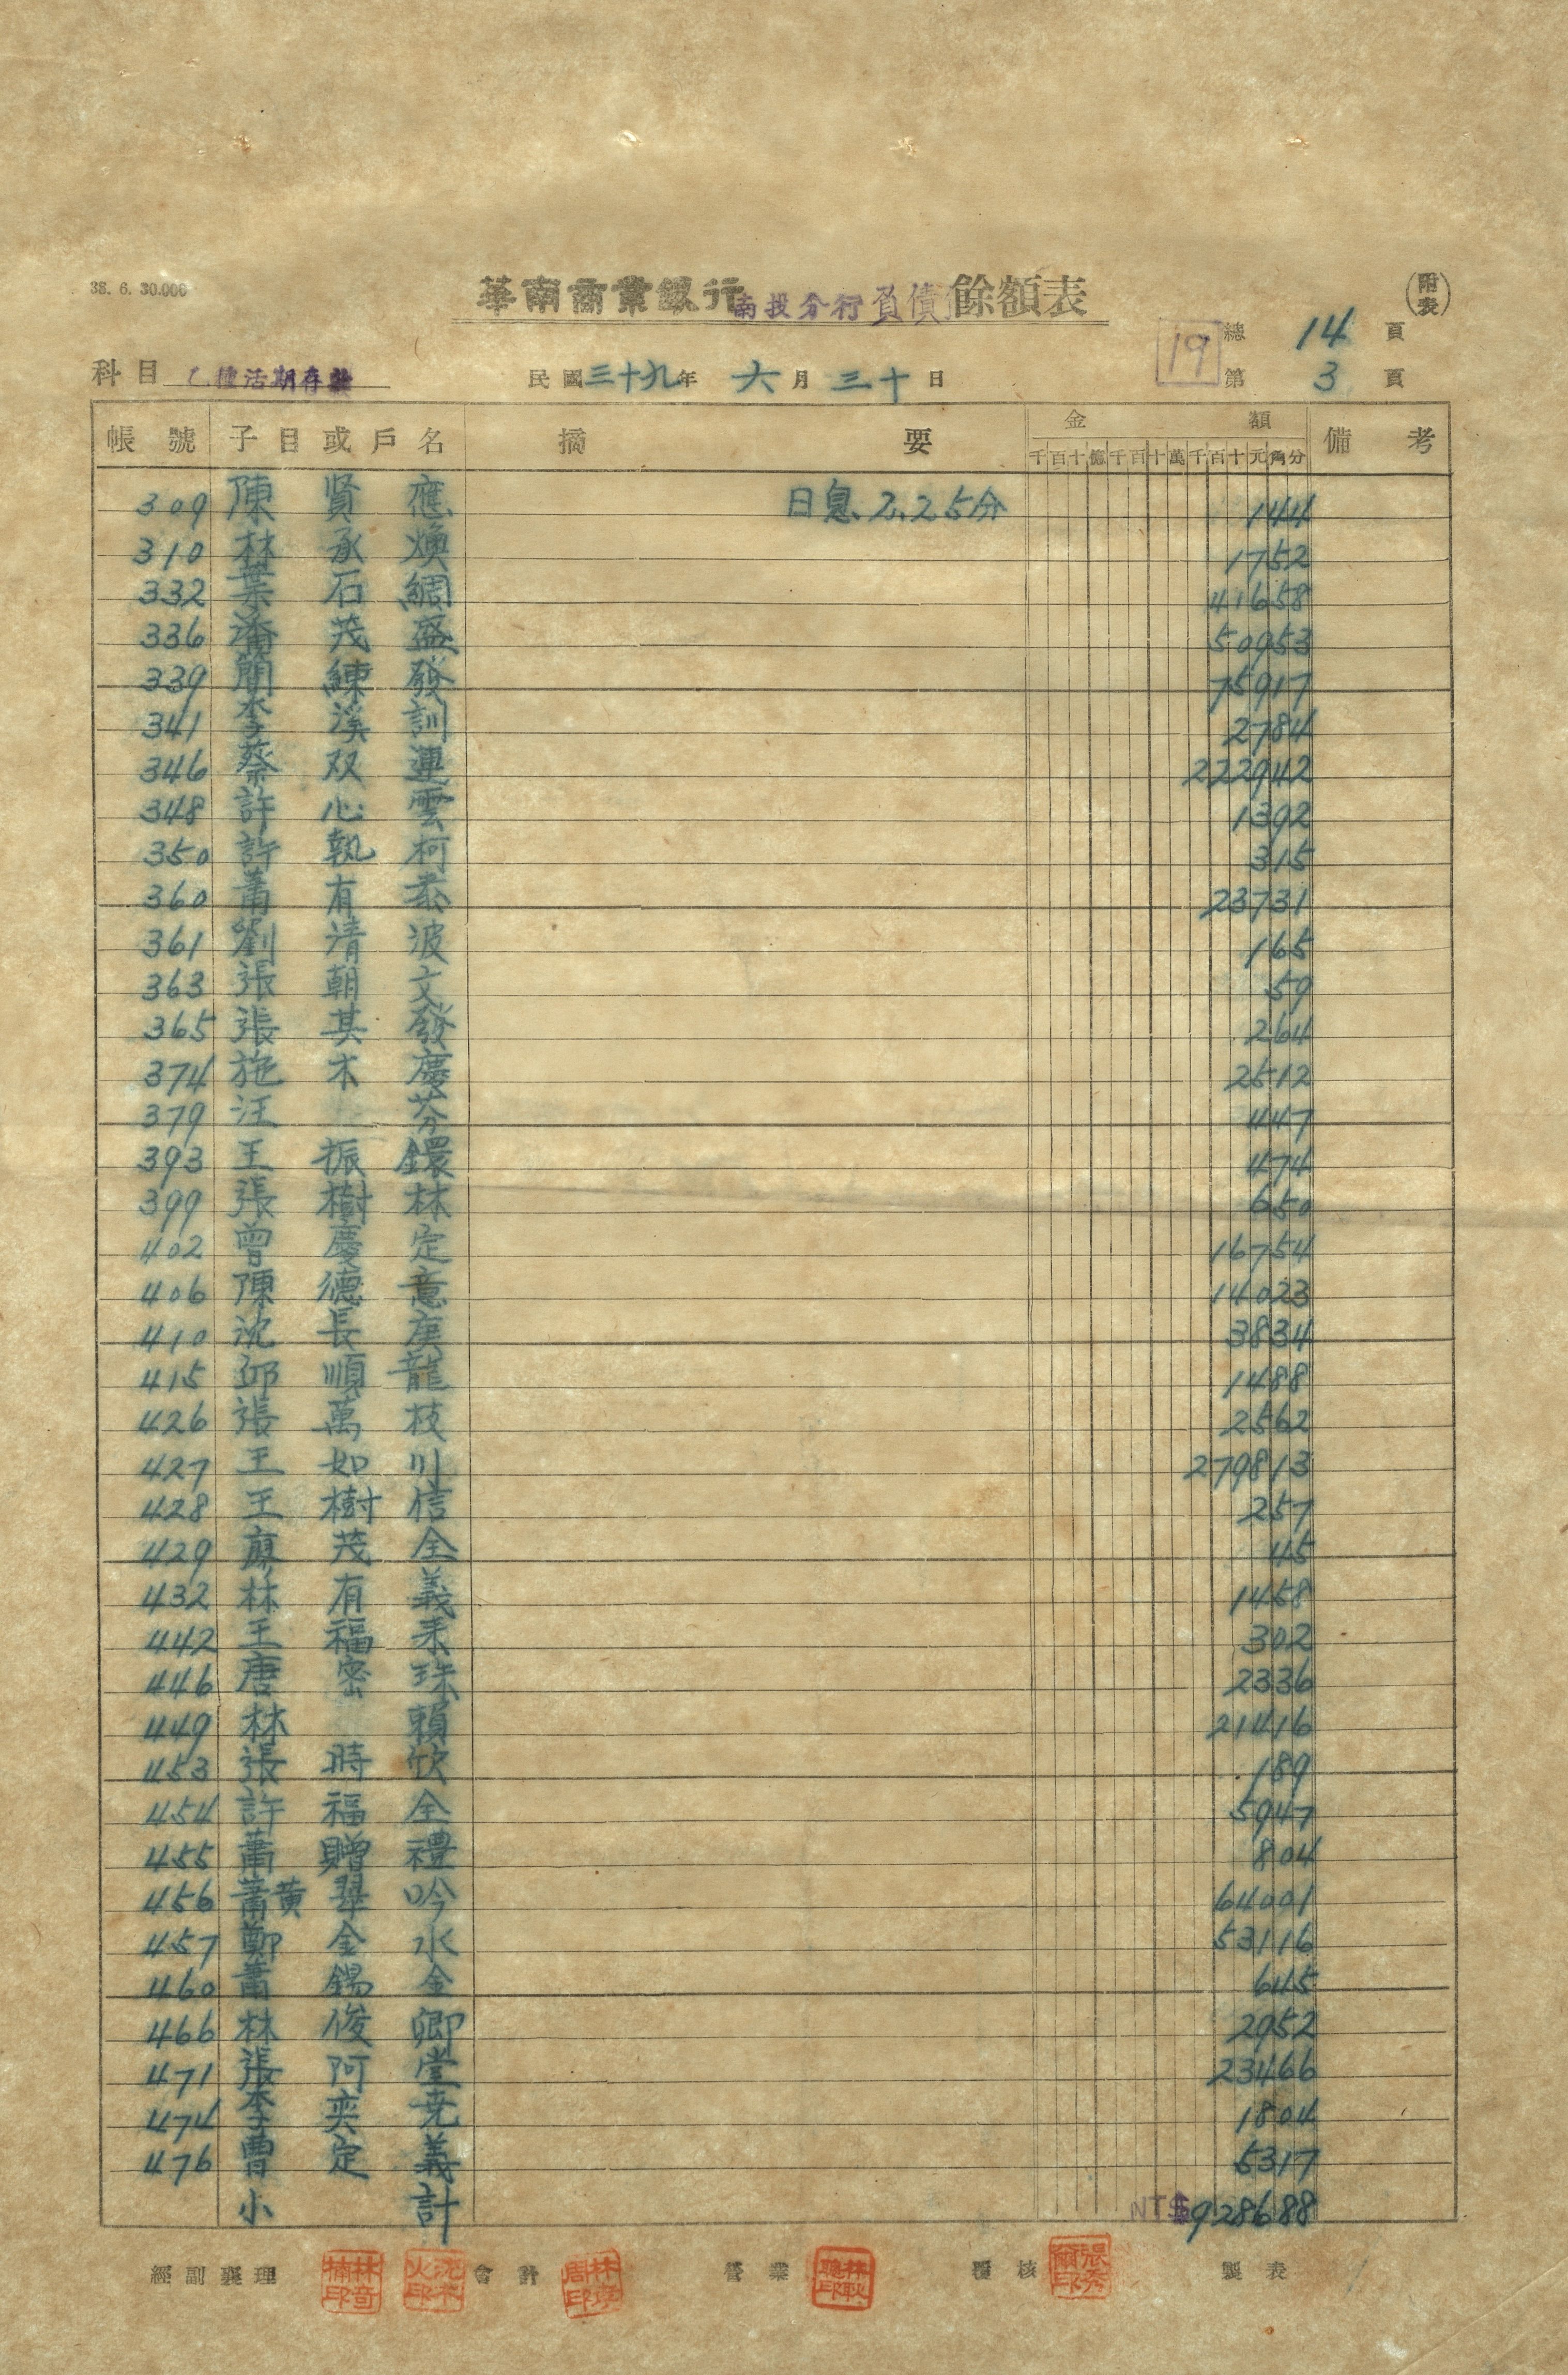 38. 6. 30.000
華南商業銀行南投分行負債餘額表
(附表)
總 14 頁
19
科目 乙種活期存款 民國三十九年 六月三十日 第 3 頁
帳號 子目或戶名 摘要 金額 備考
千百十億千百十萬千百十元角分
309 陳賢應 日息 2.25分 144
310 林承煥 1752
332 葉石綢 41658
336 潘茂盛 50953
339 簡練發 75917
341 李溪訓 2784
346 蔡双連 222942
348 許心雲 1392
350 許執柯 315
360 蕭有 23731
361 劉清波 165
363 張朝文 59
365 張其發 264
374 施木慶 2512
379 汪芬 447
393 王振鐶 474
399 張樹林 650
402 曾慶定 16754
406 陳德意 14023
410 沈長庚 3834
415 邱順龍 1488
426 張萬枝 2562
427 王如川 279813
428 王樹信 257
429 廖茂全 45
432 林有義 1458
442 王福來 302
446 唐密珠 2336
449 林賴 21416
453 張時欽 189
454 許福全 5947
455 蕭贈禮 804
456 蕭黃翠吟 64001
457 鄭金水 53116
460 蕭錫金 645
466 林俊卿 2952
471 張阿堂 23466
474 李奕堯 1804
476 曹定義 5317
小計 NT$928688
經副襄理 會計 營業 覆核 製表